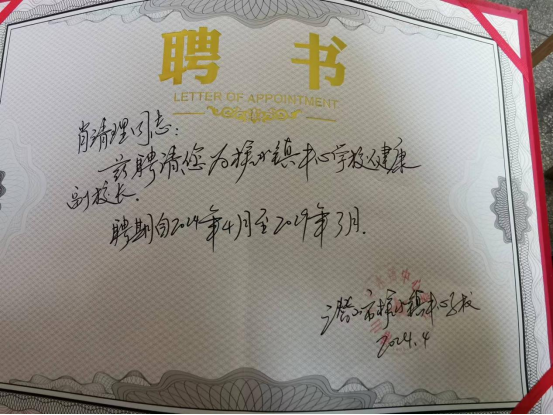 聘 书
LETTER OF APPOINTMENT
肖清理同志：
兹聘请您为 镇中心学校健康
副校长.
聘期自2024年4月至2029年3月.
市 镇中心学校
2024.4